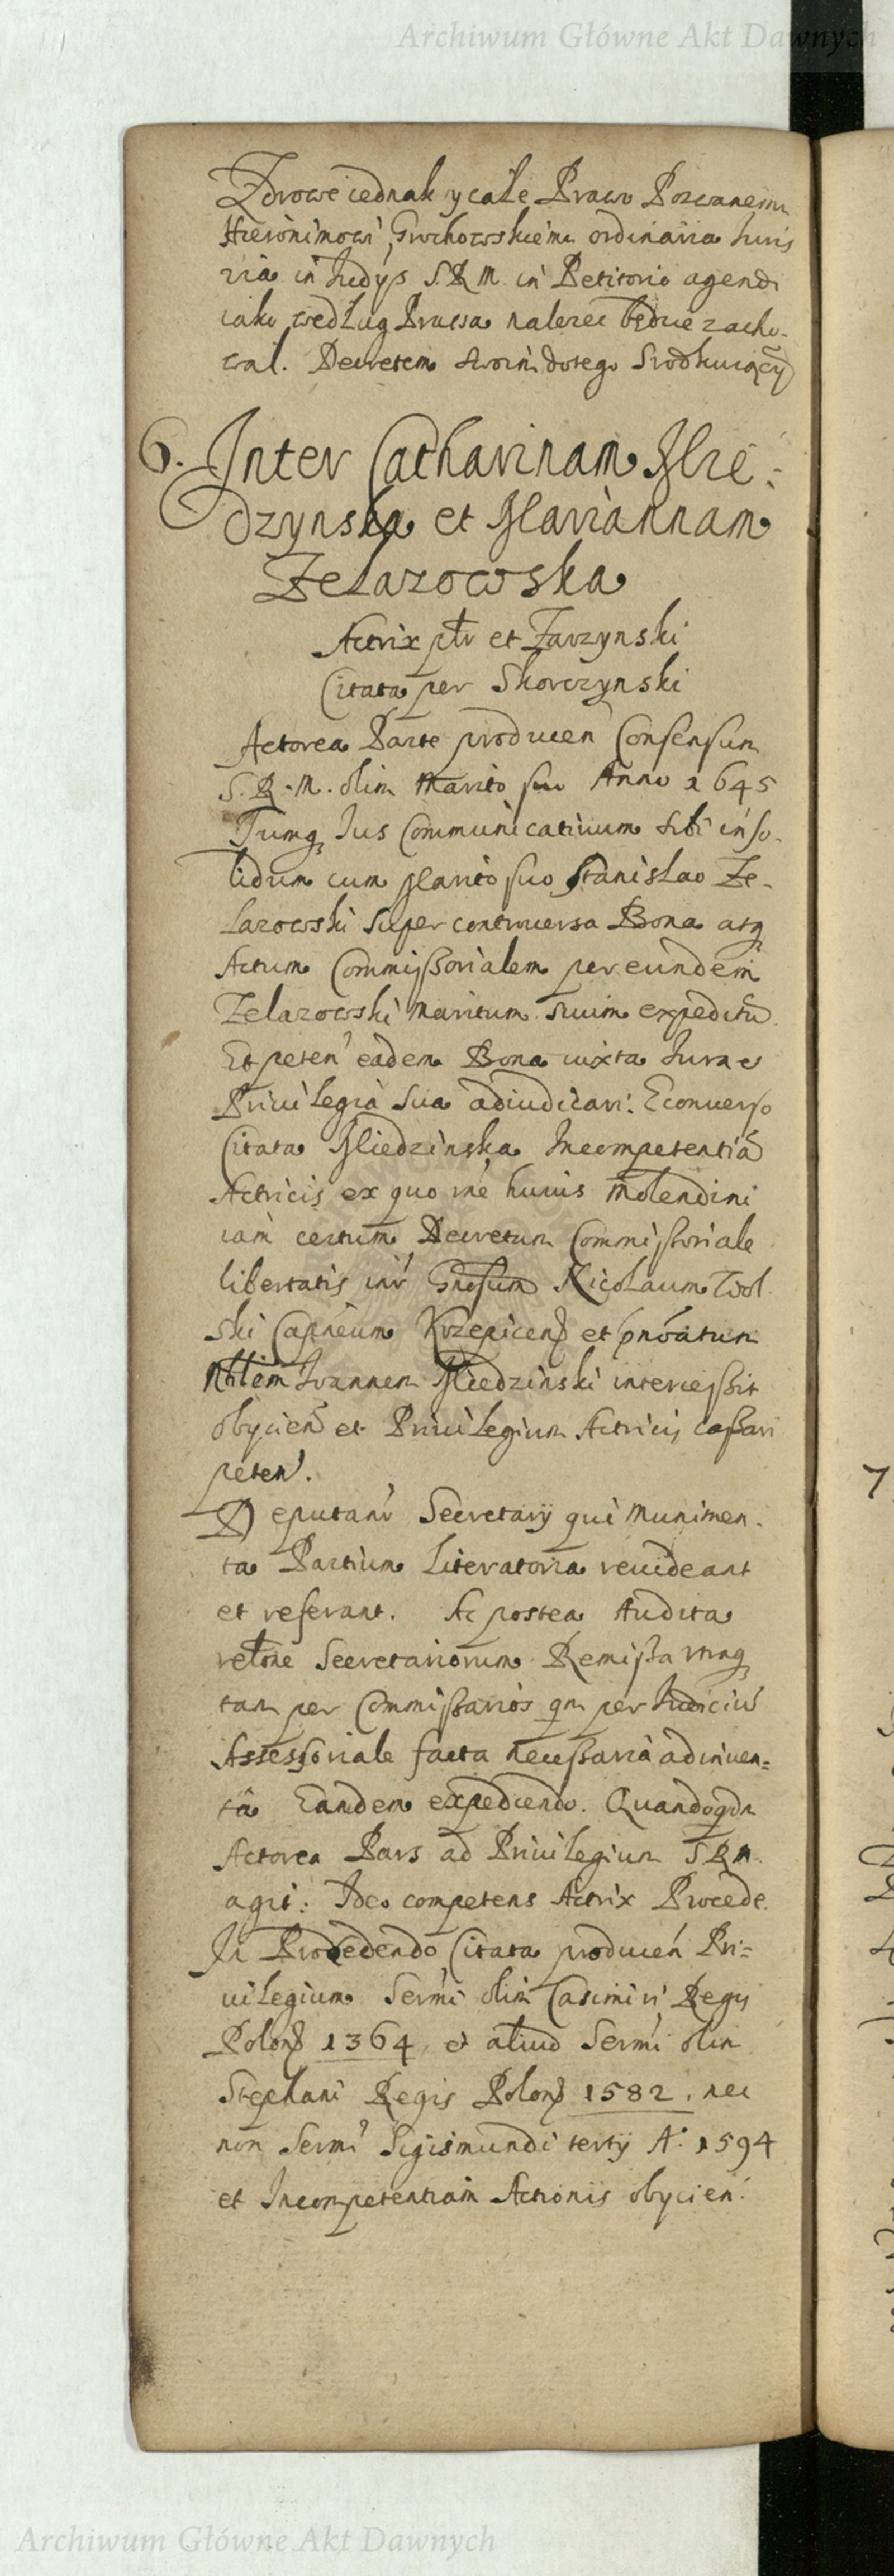 Archiwum Główne Akt Dawnych
Zdrowe iednak y całe Prawo Pozwanemu
Hieronimowi Grochowskiemu ordinaria Iuris
via in Iudys S.R.M. in Petitorio agendi
iako według Prawa nalezec będzie zacho-
wal. Decretem swoim dotego Srodkuiący
6. Inter Catharinam Mie-
dzynska et Mariannam
Zelazowska
Actrix ptr et Zarzynski
Citata per Skorczynski
Actorea Parte producen Consensum
S.R.M. olim Marito suo Anno 1645
Tumq Ius Communicativum sibi inso-
lidum cum Marito suo Stanislao Ze-
lazowski super controuersa Bona atq
Actum Commissorialem per eundem
Zelazowski Maritum suum expeditu
Et peten eadem Bona iuxta Iura e
Priuilegia sua adiudicari. Econuerso
Citata Miedzinska Incompetentia
Actricis ex quo rne huius Molendini
iam certum Decretum Commissoriale
libertatis inr Gnosum Nicolaum Wol
ski Capneum Krzepicen et pnoatum
Nblem Ioannem Miedzinski intercessit
obycien et Priuilegium Actricis cassari
peten.
Deputanr Secretarÿ qui Munimen-
ta Partium Literatoria reuideant
et referant. Ac postea Audita
retone Secretariorum Remissa utraq
tam per Commissarios qm per Iudiciu
Assessoriale facta necessaria adinuen-
ta Eandem expediendo. Quandoqdm
Actorea Pars ad Priuilegium S.R.M.
agit: Ideo competens Actrix Procede.
In Procedendo Citata producen Pri-
uilegium Sermi olim Casimiri Regis
Polon 1364 et aliud Sermi olim
Stephani Regis Polon 1582. nec
non Sermi Sigismundi tertÿ A. 1594
et Incompetentiam Actionis obycien.
7
Archiwum Główne Akt Dawnych